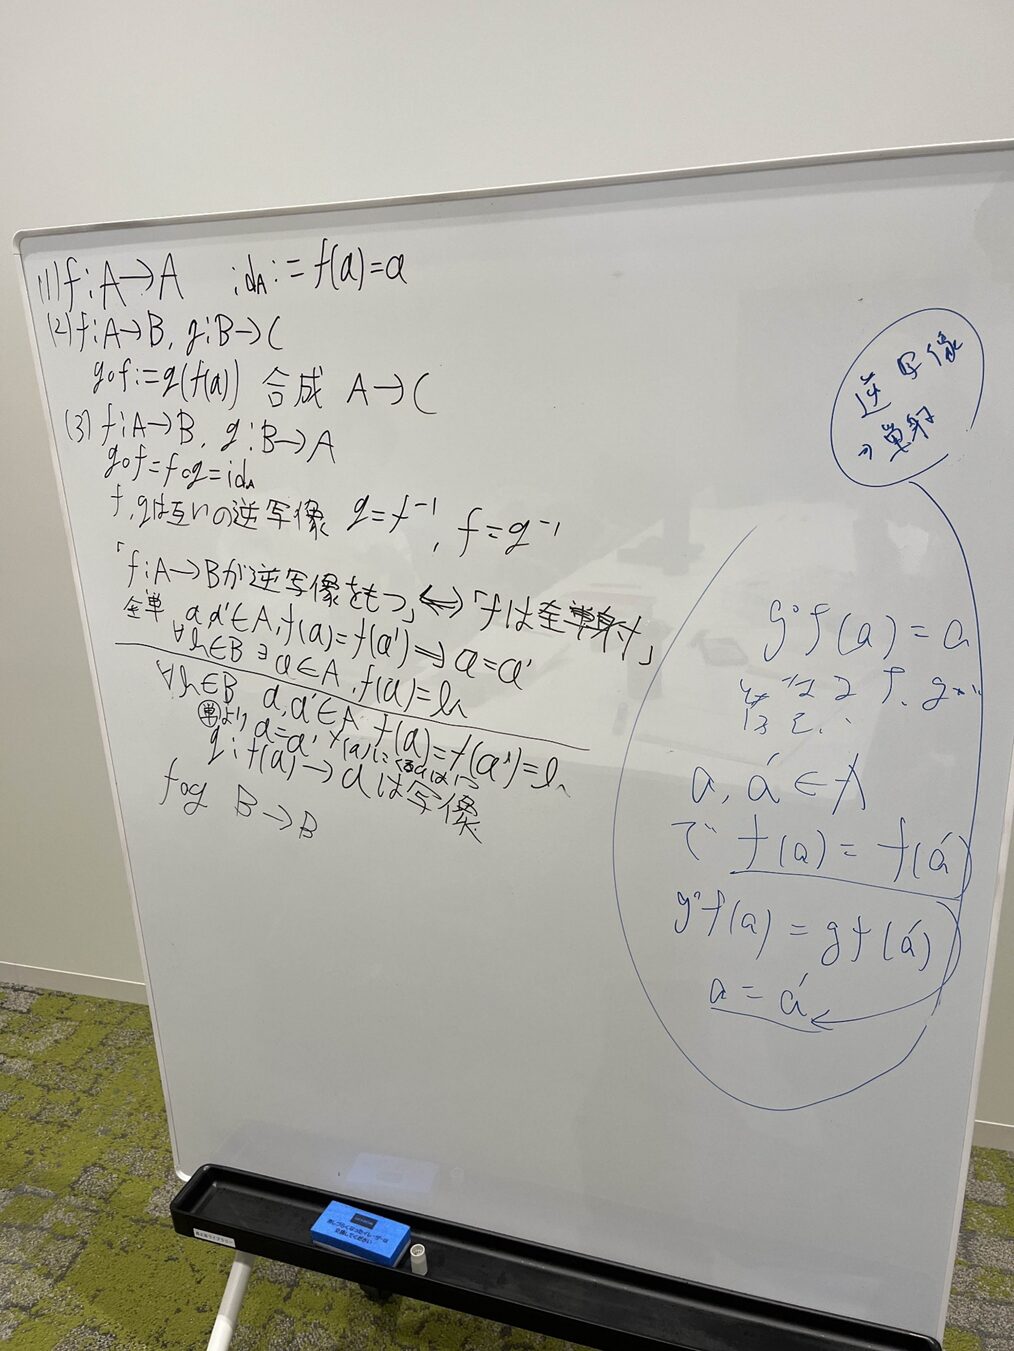 (1) f:A→A id_A:=f(a)=a
(2) f:A→B, g:B→C
g∘f:=g(f(a)) 合成 A→C
(3) f:A→B, g:B→A
g∘f=f∘g=id_A
f,gは互いの逆写像 g=f⁻¹, f=g⁻¹
「f:A→Bが逆写像をもつ」⇔「fは全単射」
全単 a,a'∈A, f(a)=f(a')⇒a=a'
∀b∈B ∃a∈A, f(a)=b
∀b∈B a,a'∈A f(a)=f(a')=b
単より a=a' f(a)にくるaは1つ
g:f(a)→aは写像
f∘g B→B
逆写像
⇒単射
g∘f(a)=a
f,gが
a,a'∈A
で f(a)=f(a')
g∘f(a)=gf(a')
a=a'